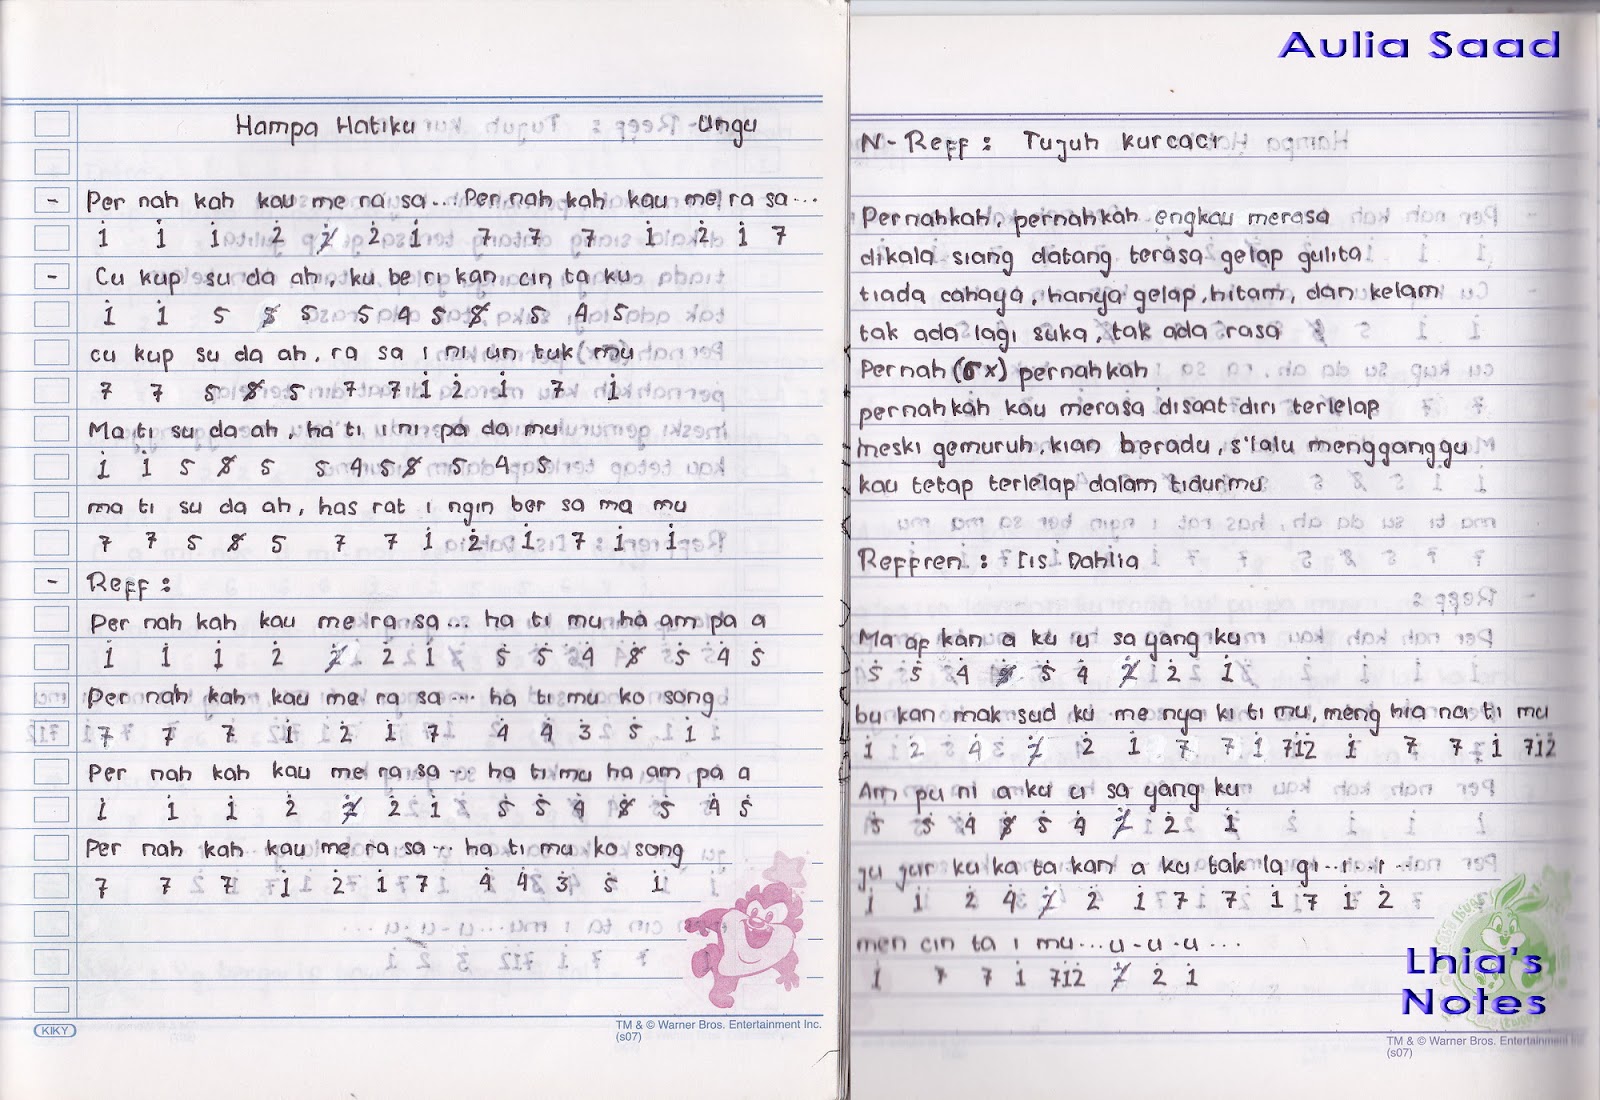 Hampa Hatiku Ungu
- Per nah kah kau me ra sa... Per nah kah kau me ra sa...
1̇ 1̇ 1̇ 2̇ 2̸̇ 2̇ 1̇ 7 7 7 1̇ 2̇ 1̇ 7
- Cu kup su da ah, ku be ri kan cin ta ku
1̇ 1̇ 5 5̸ 5 5 4 5 5̸ 5 4 5
cu kup su da ah, ra sa i ni un tuk mu
7 7 5 5̸ 5 7 7 1̇ 2̇ 1̇ 7 1̇
Ma ti su da ah, ha ti i ni pa da mu
1̇ 1̇ 5 5̸ 5 5 4 5 5̸ 5 4 5
ma ti su da ah, has rat i ngin ber sa ma mu
7 7 5 5̸ 5 7 7 1̇ 2̇ 1̇ 7 1̇ 1̇
- Reff :
Per nah kah kau me ra sa... ha ti mu ha am pa a
1̇ 1̇ 1̇ 2̇ 2̸̇ 2̇ 1̇ 5̇ 5̇ 4̇ 5̸̇ 5̇ 4̇ 5̇
Per nah kah kau me ra sa... ha ti mu ko song
7 7 7 1̇ 2̇ 1̇ 7 4̇ 4̇ 3̇ 5̇ 1̇
Per nah kah kau me ra sa... ha ti mu ha am pa a
1̇ 1̇ 1̇ 2̇ 2̸̇ 2̇ 1̇ 5̇ 5̇ 4̇ 5̸̇ 5̇ 4̇ 5̇
Per nah kah kau me ra sa... ha ti mu ko song
7 7 7 1̇ 2̇ 1̇ 7 4̇ 4̇ 3̇ 5̇ 1̇
KIKY
TM & © Warner Bros. Entertainment Inc.
(s07)
Aulia Saad
N- Reff : Tujuh Kurcaci
Pernahkah, pernahkah engkau merasa
dikala siang datang terasa gelap gulita
tiada cahaya, hanya gelap, hitam, dan kelam
tak ada lagi suka, tak ada rasa
Pernah (5x) pernahkah
pernahkah kau merasa disaat diri terlelap
meski gemuruh, kian beradu, s'lalu mengganggu
kau tetap terlelap dalam tidurmu
Reffren : Iis Dahlia
Ma af kan a ku u sa yang ku
5̇ 5̇ 4̇ 5̸̇ 5̇ 4̇ 2̸̇ 2̇ 1̇
bu kan mak sud ku me nya ki ti mu, meng hia na ti mu
1̇ 2̇ 4̇ 2̸̇ 2̇ 1̇ 7 7 1̇ 71̇2̇ 1̇ 7 7 1̇ 71̇2̇
Am pu ni a ku u sa yang ku
5̇ 5̇ 4̇ 5̸̇ 5̇ 4̇ 2̸̇ 2̇ 1̇
ju jur ku ka ta kan a ku tak la gi..i..i..
1̇ 1̇ 2̇ 4̇ 2̸̇ 2̇ 1̇ 7 7 1̇ 7 1̇ 2̇
men cin ta i mu... u - u - u ...
1̇ 7 7 1̇ 71̇2̇ 2̸̇ 2̇ 1̇
Lhia's
Notes
TM & © Warner Bros. Entertainment Inc.
(s07)